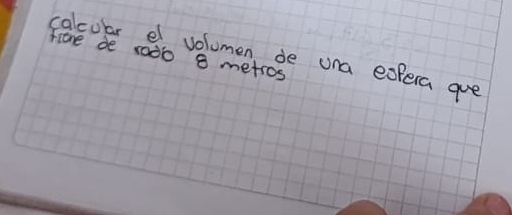 calcular el volumen de una esfera que
tiene de radio 8 metros